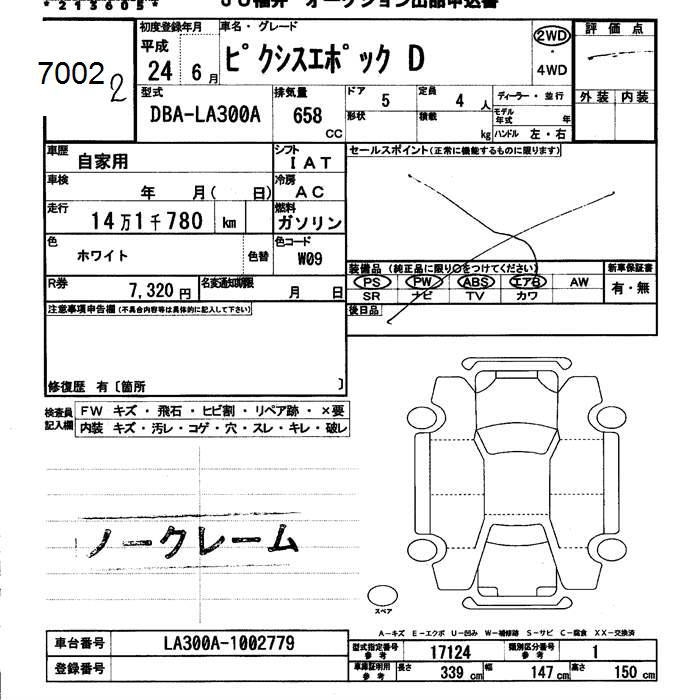 *213605*
JU福井 オークション出品申込書
7002 2
初度登録年月
平成
24 6 月
車名・グレード
ピクシスエポック D
2WD
・
4WD
評価点
外装 内装
型式
DBA-LA300A
排気量
658
CC
ドア
5
形状
定員
4 人
積載
kg
ディーラー・並行
モデル年式 年
ハンドル 左・右
車歴
自家用
シフト
IAT
セールスポイント(正常に機能するものに限ります)
車検
年 月( 日)
冷房
AC
走行
14万1千780 km
燃料
ガソリン
色
ホワイト
色替
色コード
W09
装備品 (純正品に限り○をつけてください)
新車保証書
PS PW ABS エアB AW
SR ナビ TV カワ
有・無
R券
7,320 円
名変通知期限
月 日
後日品
注意事項申告欄(不具合内容等は具体的に記入して下さい)
修復歴 有〔箇所 〕
検査員記入欄
FW キズ・飛石・ヒビ割・リペア跡・×要
内装 キズ・汚レ・コゲ・穴・スレ・キレ・破レ
ノークレーム
スペア
A-キズ E-エクボ U-凹み W-補修跡 S-サビ C-腐食 XX-交換済
車台番号
LA300A-1002779
登録番号
型式指定番号
参考
17124
類別区分番号
参考
1
車庫証明用
参考
長さ 339 cm 幅 147 cm 高さ 150 cm